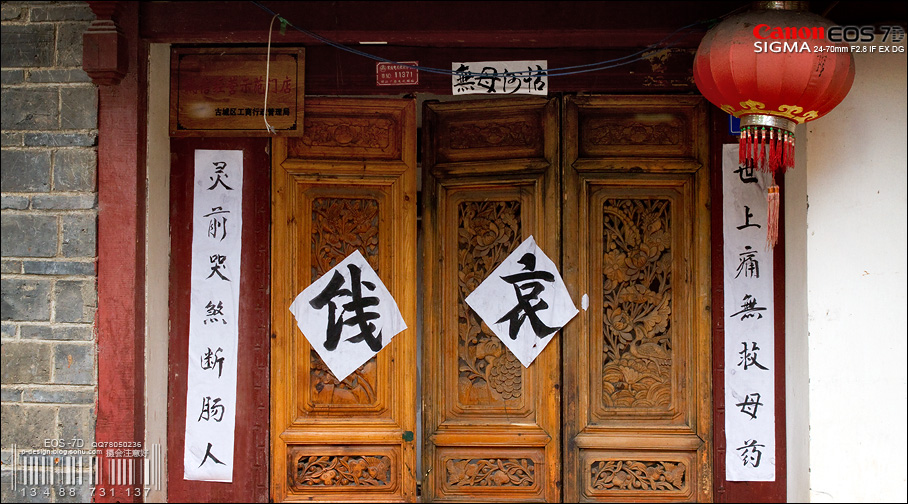 Canon EOS 7D
SIGMA 24-70mm F2.8 IF EX DG
示范门店
古城区工商行政管理局
11371
無母何怙
世上痛無救母药
灵前哭煞断肠人
哀
EOS-7D QQ78050236
p-design.blog.sohu.com
13488 731 137